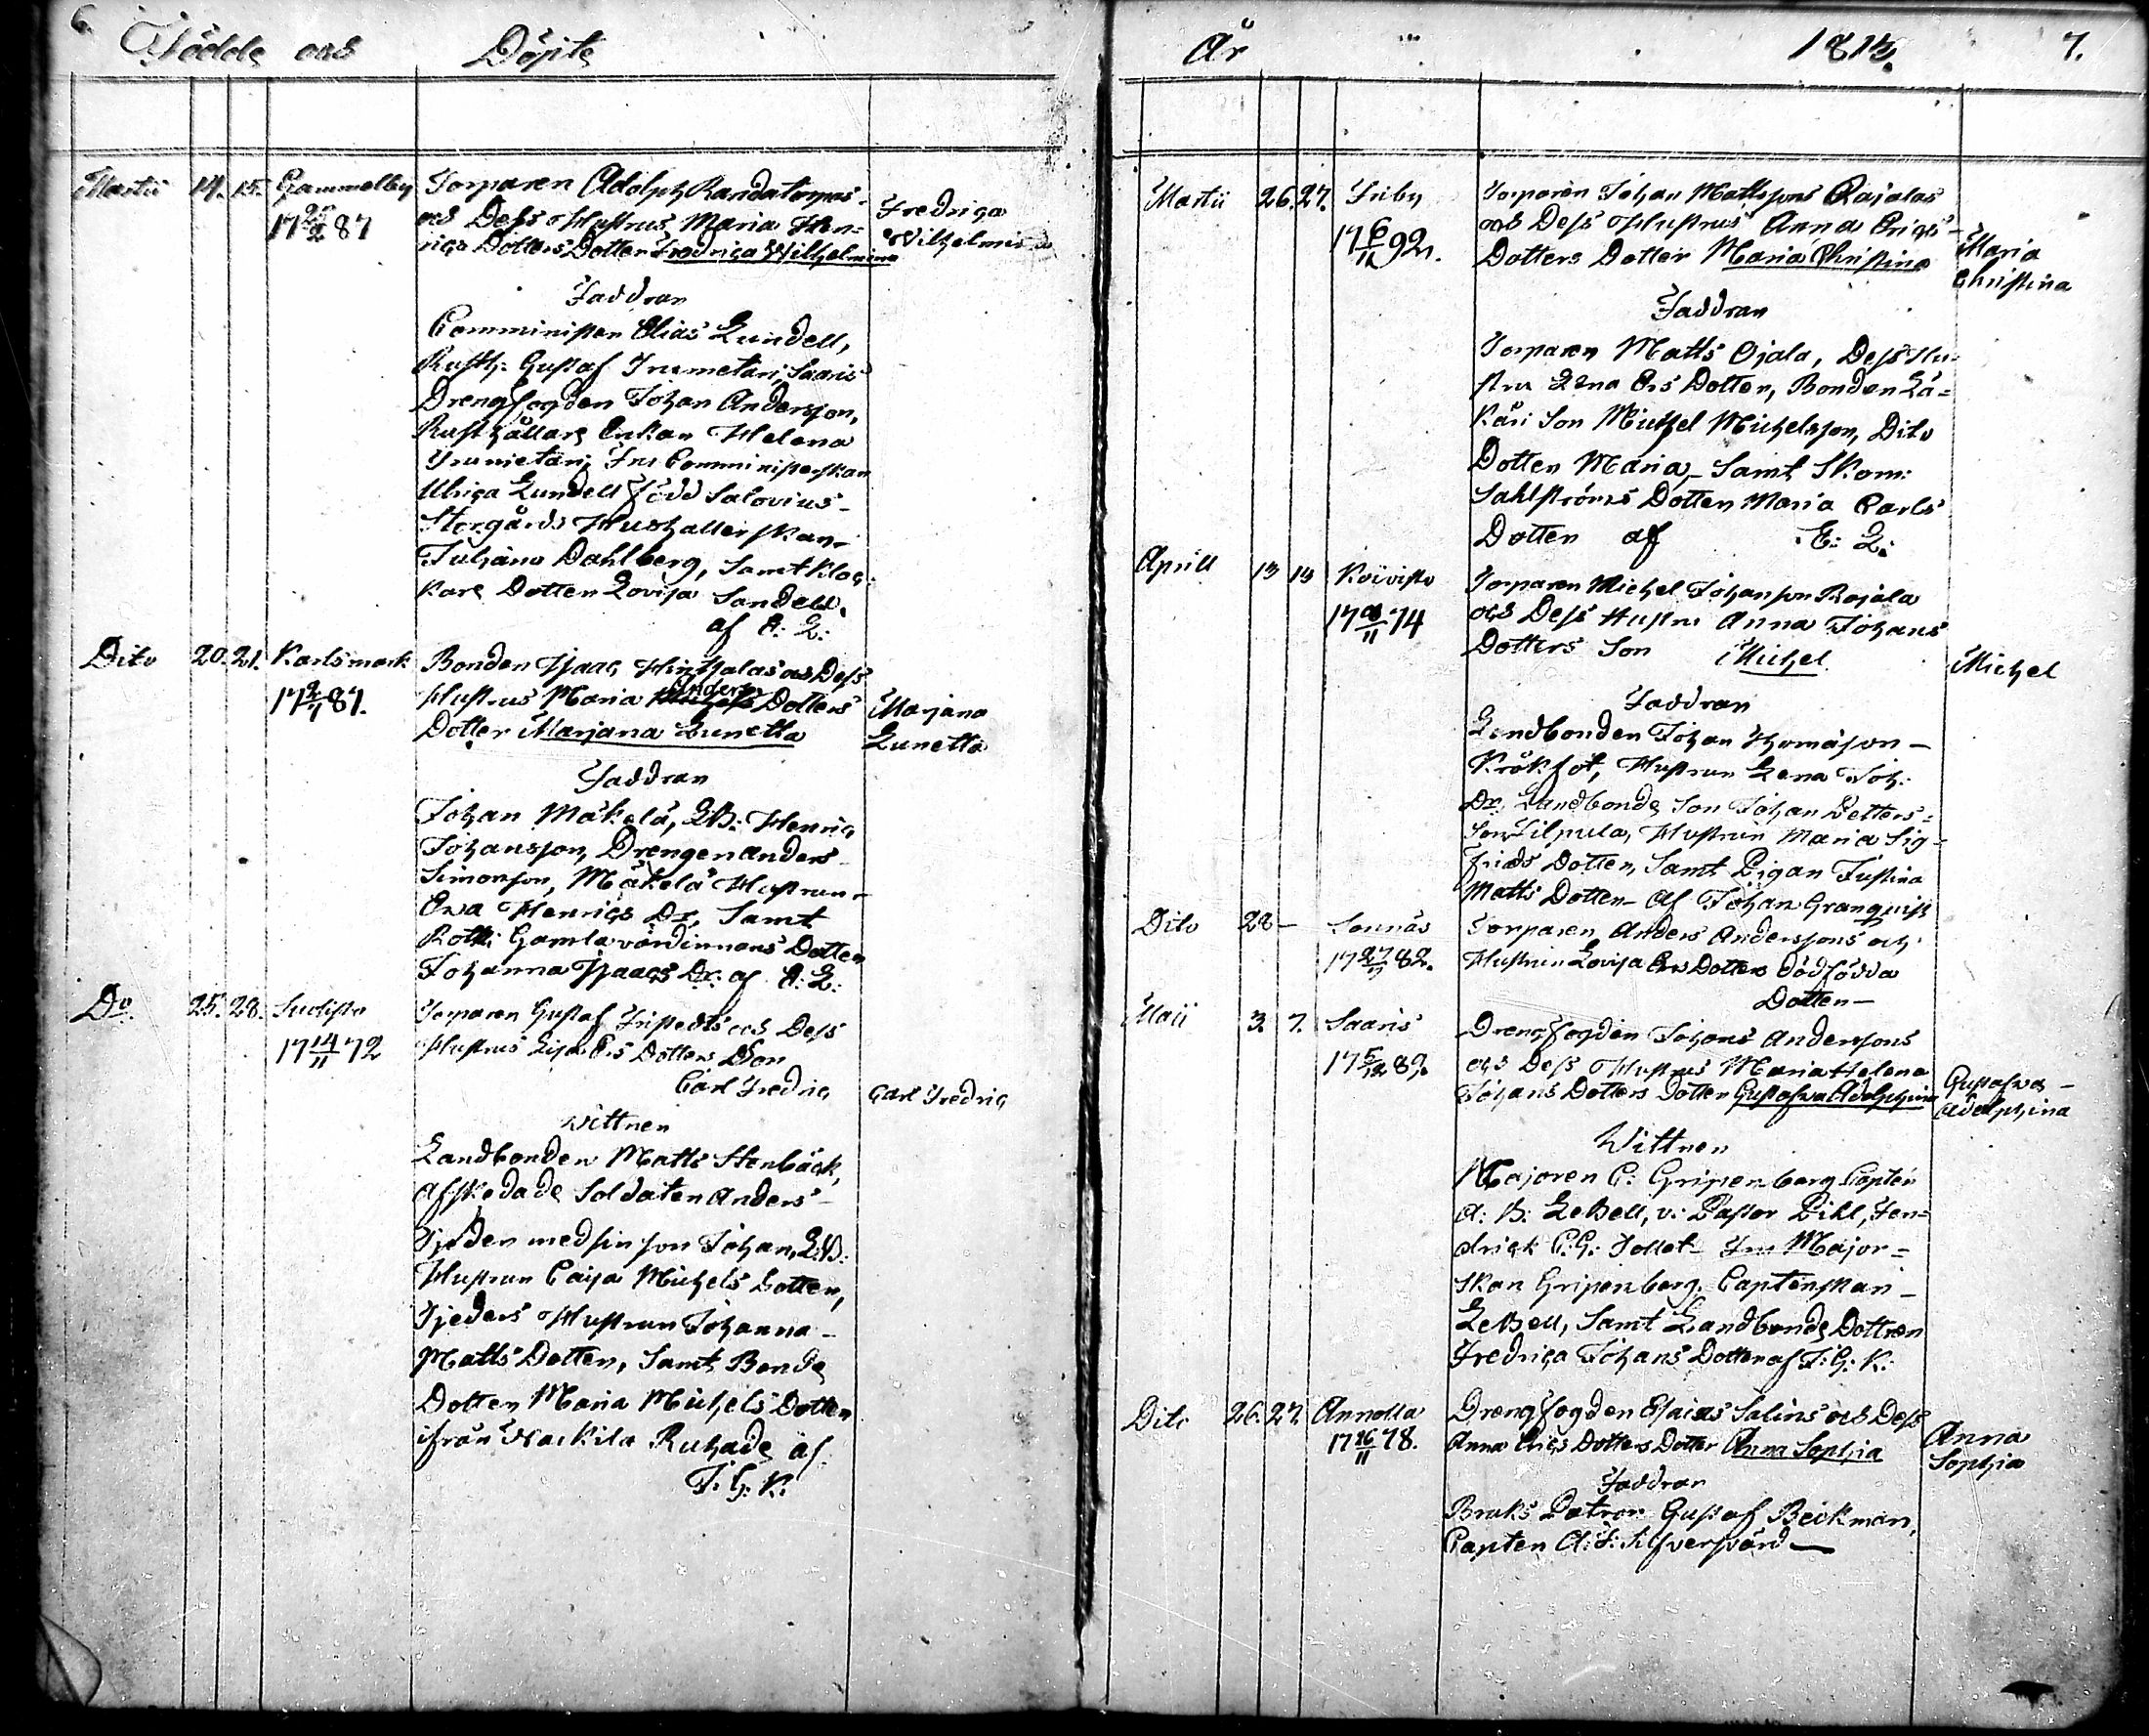 6. Födde och Döpte
Martii 14. 15. Gammelby Torparen Adolph Randatorpas
17 25/2 87 och Dess Hustrus Maria Hen=
rics Dotters Dotter Fredrica Wilhelmina
Fredrica
Wilhelmina
Faddran
Comministern Elias Lundell,
Rusth: Gustaf Saaris
Drengfogden Johan Andersson,
Rusthållare Enkan Helena
Fru Comministerskan
Ulrica Lundell född Salovius
Storgårds Hushållerskan
Juliana Dahlberg, Samt Kloc=
kare Dotten Lovisa Sandell.
af E: L:
Dito 20. 21. Karlsmark Bonden Isaac och Dess
17 2/7 87. Hustrus Maria Anders Dotters
Dotter Marjana Lunetta
Marjana
Lunetta
Faddran
Johan Mäkelä, LB: Henric
Johansson, Drengen Anders
Simonson, Mäkelä Hustrun
Eva Henrics Dr, Samt
Gamla värdinnans Dotten
Johanna Isaacs Dr. af E: L:
Do. 25. 28. Torparen Gustaf och Dess
17 14/11 72 Hustrus Lisa Ers Dotters Son
Carl Fredric
Carl Fredric
Wittnen
Landbonden Matts Stenbäck,
Afskedade Soldaten Anders
Tjeder med sin son Johan, LB:
Hustrun Caisa Michels Dotten,
Tjeders Hustrun Johanna
Matts Dotten, Samt Bonde
Dotten Maria Michels Dotten
ifrån af
J. G. K.
År 1815. 7.
Martii 26. 27. Friby Torparen Johan Mattssons Rajalas
17 6/11 92. och Dess Hustrus Anna Erics
Dotters Dotter Maria Christina
Maria
Christina
Faddran
Torparen Matts Ojala, Dess Hu=
stru Lena Ers Dotten, Bonden Lä=
käri Son Michel Michelsson, Dito
Dotten Maria, Samt Skom:
Sahlströms Dotten Maria Carls
Dotten af E: L:
Aprill 13 13 Koivisto Torparen Michel Johanson Rajala
17 8/11 74 och Dess Hustru Anna Johans
Dotters Son Michel.
Michel
Faddran
Landbonden Johan Thomasson
Kråkfot, Hustrun Lena Joh:
Dr. Landbonde Son Johan Petters=
son Filpula, Hustrun Maria Sig=
frids Dotten, Samt Pigan Justina
Matts Dotten af Johan Granqvist
Dito 28 — Sonnäs Torparen Anders Anderssons och
17 27/7 82. Hustrun Lovisa Ers Dotters dödfödda
Dotter —
Maii 3. 7. Saaris Drengfogden Johans Anderssons
17 5/12 89. och Dess Hustrus Maria Helena
Johans Dotters Dotter Gustafva Adolphina
Gustafva
Adolphina
Wittnen
Majoren C: Gripenberg Capten
A: B: LeBell, v: Pastor Pihl, Fen=
drick C: G: Tollet Fru Major=
skan Gripenberg, Captenskan
LeBell, Samt Landbonde Dottren
Fredrica Johans Dotten af J: G: K:
Dito 26. 27. Annolla Drengfogden Esaias Salins och Dess
17 26/11 78. Anna Erics Dotters Dotter Anna Sophia
Anna
Sophia
Faddran
Bruks Patron Gustaf Beckman,
Capten A: F: Silfversvärd —